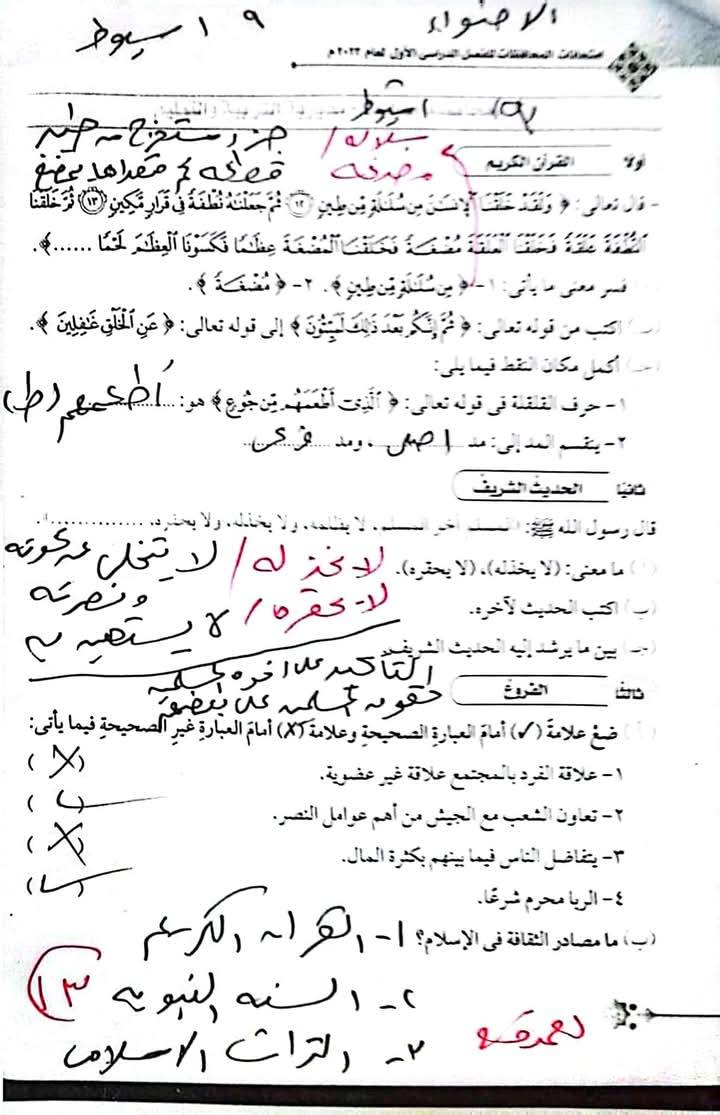 الاضواء ٩ اسيوط
امتحانات المحافظات للفصل الدراسى الأول لعام ٢٠٢٣م
اسيوط
أولا القرآن الكريم
سلاله/ جزء مستخرج من
مضغه قطعه لحم مقدار ما يمضغ
- قال تعالى: ﴿ وَلَقَدْ خَلَقْنَا الْإِنسَانَ مِن سُلَالَةٍ مِّن طِينٍ ﴿١٢﴾ ثُمَّ جَعَلْنَاهُ نُطْفَةً فِي قَرَارٍ مَّكِينٍ ﴿١٣﴾ ثُمَّ خَلَقْنَا
النُّطْفَةَ عَلَقَةً فَخَلَقْنَا الْعَلَقَةَ مُضْغَةً فَخَلَقْنَا الْمُضْغَةَ عِظَامًا فَكَسَوْنَا الْعِظَامَ لَحْمًا ......﴾.
فسر معنى ما يأتى: ١- ﴿ مِن سُلَالَةٍ مِّن طِينٍ ﴾. ٢- ﴿ مُضْغَةً ﴾.
(ب) اكتب من قوله تعالى: ﴿ ثُمَّ إِنَّكُم بَعْدَ ذَٰلِكَ لَمَيِّتُونَ ﴾ إلى قوله تعالى: ﴿ عَنِ الْخَلْقِ غَافِلِينَ ﴾.
(جـ) أكمل مكان النقط فيما يلى:
١- حرف القلقلة فى قوله تعالى: ﴿ الَّذِي أَطْعَمَهُم مِّن جُوعٍ ﴾ هو: أطعمهم (ط)
٢- ينقسم المد إلى: مد اصلى ، ومد فرعى
ثانيا الحديث الشريف
قال رسول الله ﷺ: «المسلم أخو المسلم، لا يظلمه، ولا يخذله، ولا يحقره، ............».
(أ) ما معنى: (لا يخذله)، (لا يحقره). لا يخذله/ لا يتخلى عن معونته
ونصرته
(ب) اكتب الحديث لآخره. لا يحقره/ لا يستهين به
(جـ) بين ما يرشد إليه الحديث الشريف.
التأكيد على اخوه المسلمين
حقوق المسلمين على بعضهم
ثالثا الفروع
(أ) ضع علامة (✓) أمام العبارة الصحيحة وعلامة (X) أمام العبارة غير الصحيحة فيما يأتى:
١- علاقة الفرد بالمجتمع علاقة غير عضوية. (X)
٢- تعاون الشعب مع الجيش من أهم عوامل النصر. (✓)
٣- يتفاضل الناس فيما بينهم بكثرة المال. (X)
٤- الربا محرم شرعًا. (✓)
(ب) ما مصادر الثقافة فى الإسلام؟ ١- القران الكريم
٢- السنه النبويه
١٣
٣- التراث الاسلامى